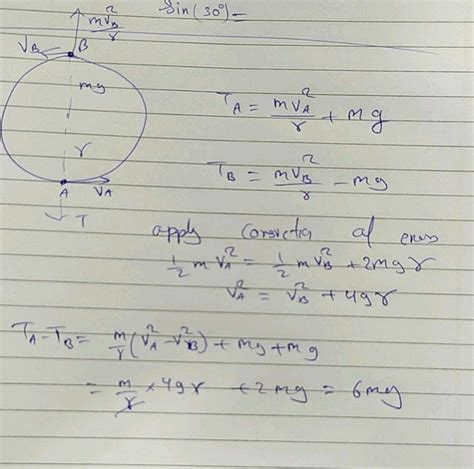 Sin(30°)=
mv_B²/r
V_B B
mg
r
A V_A
T
T_A = mv_A²/r + mg
T_B = mv_B²/r - mg
apply of
1/2 m V_A² = 1/2 m V_B² + 2mgr
V_A² = V_B² + 4gr
T_A - T_B = m/r (V_A² - V_B²) + mg + mg
= m/r × 4gr + 2mg = 6mg